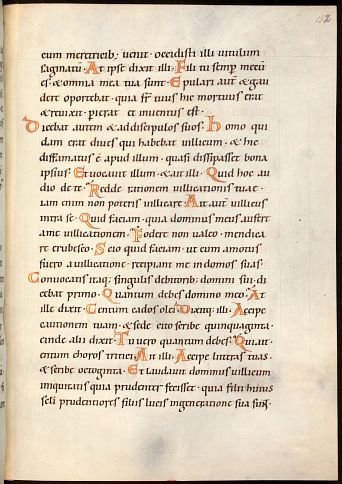 152
cum meretricib; uenit. occidisti illi uitulum
saginatu. At ipse dixit illi. Fili tu semp mecu
es & omnia mea tua sunt. Epulari aut & gau
dere oportebat. quia fr tuus hic mortuus erat
& reuixit. pierat et inuentus est.
Dicebat autem & addiscipulos suos. Homo qui
dam erat diues qui habebat uillicum. & hic
diffamatus e apud illum. quasi dissipasset bona
ipsius. Et uocauit illum. & ait illi. Quid hoc au
dio de te. Redde rationem uillicationis tuae.
iam enim non poteris uillicare. Ait aut uillicus
intra se. Quid faciam. quia dominus meus aufert
a me uillicationem. Fodere non ualeo. mendica
re erubesco. Scio quid faciam. ut cum amotus
fuero a uillicatione. recipiant me in domos suas.
Conuocatis itaq; singulis debitorib; domini sui. di
cebat primo. Quantum debes domino meo. At
ille dixit. Centum cados olei. Dixitq; illi. Accipe
cautionem tuam. & sede cito scribe quinquaginta.
einde alii dixit. Tu uero quantum debes. Qui ait
centum choros tritici. Ait illi. Accipe litteras tuas.
& scribe octoginta. Et laudauit dominus uillicum
iniquitatis quia prudenter fecisset. quia filii huius
scli prudentiores filiis lucis ingeneratione sua sunt.